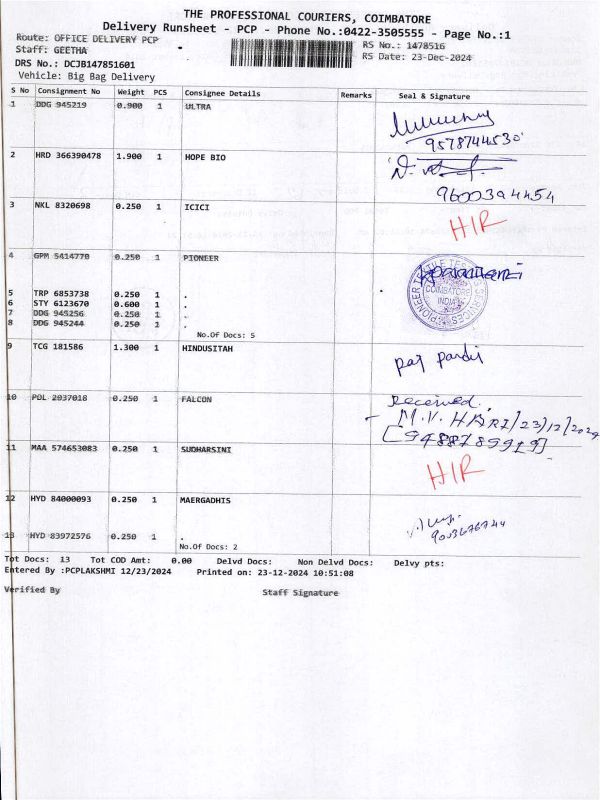 THE PROFESSIONAL COURIERS, COIMBATORE
Delivery Runsheet - PCP - Phone No.:0422-3505555 - Page No.:1
Route: OFFICE DELIVERY PCP RS No.: 1478516
Staff: GEETHA RS Date: 23-Dec-2024
DRS No.: DCJB147851601
Vehicle: Big Bag Delivery
S No Consignment No Weight PCS Consignee Details Remarks Seal & Signature
1 DDG 945219 0.900 1 ULTRA
9578744530
2 HRD 366390478 1.900 1 HOPE BIO
9600394454
3 NKL 8320698 0.250 1 ICICI
HIR
4 GPM 5414770 0.250 1 PIONEER
PIONEER TEXTILE TESTING SERVICES
COIMBATORE
INDIA
5 TRP 6853738 0.250 1 .
6 STY 6123670 0.600 1 .
7 DDG 945256 0.250 1 .
8 DDG 945244 0.250 1 .
No.Of Docs: 5
9 TCG 181586 1.300 1 HINDUSITAH
10 POL 2037018 0.250 1 FALCON
Received.
M.V. HARI/23/12/2024
[9488789919]
11 MAA 574653083 0.250 1 SUDHARSINI
HIR
12 HYD 84000093 0.250 1 MAERGADHIS
9003676744
13 HYD 83972576 0.250 1 .
No.Of Docs: 2
Tot Docs: 13 Tot COD Amt: 0.00 Delvd Docs: Non Delvd Docs: Delvy pts:
Entered By :PCPLAKSHMI 12/23/2024 Printed on: 23-12-2024 10:51:08
Verified By Staff Signature